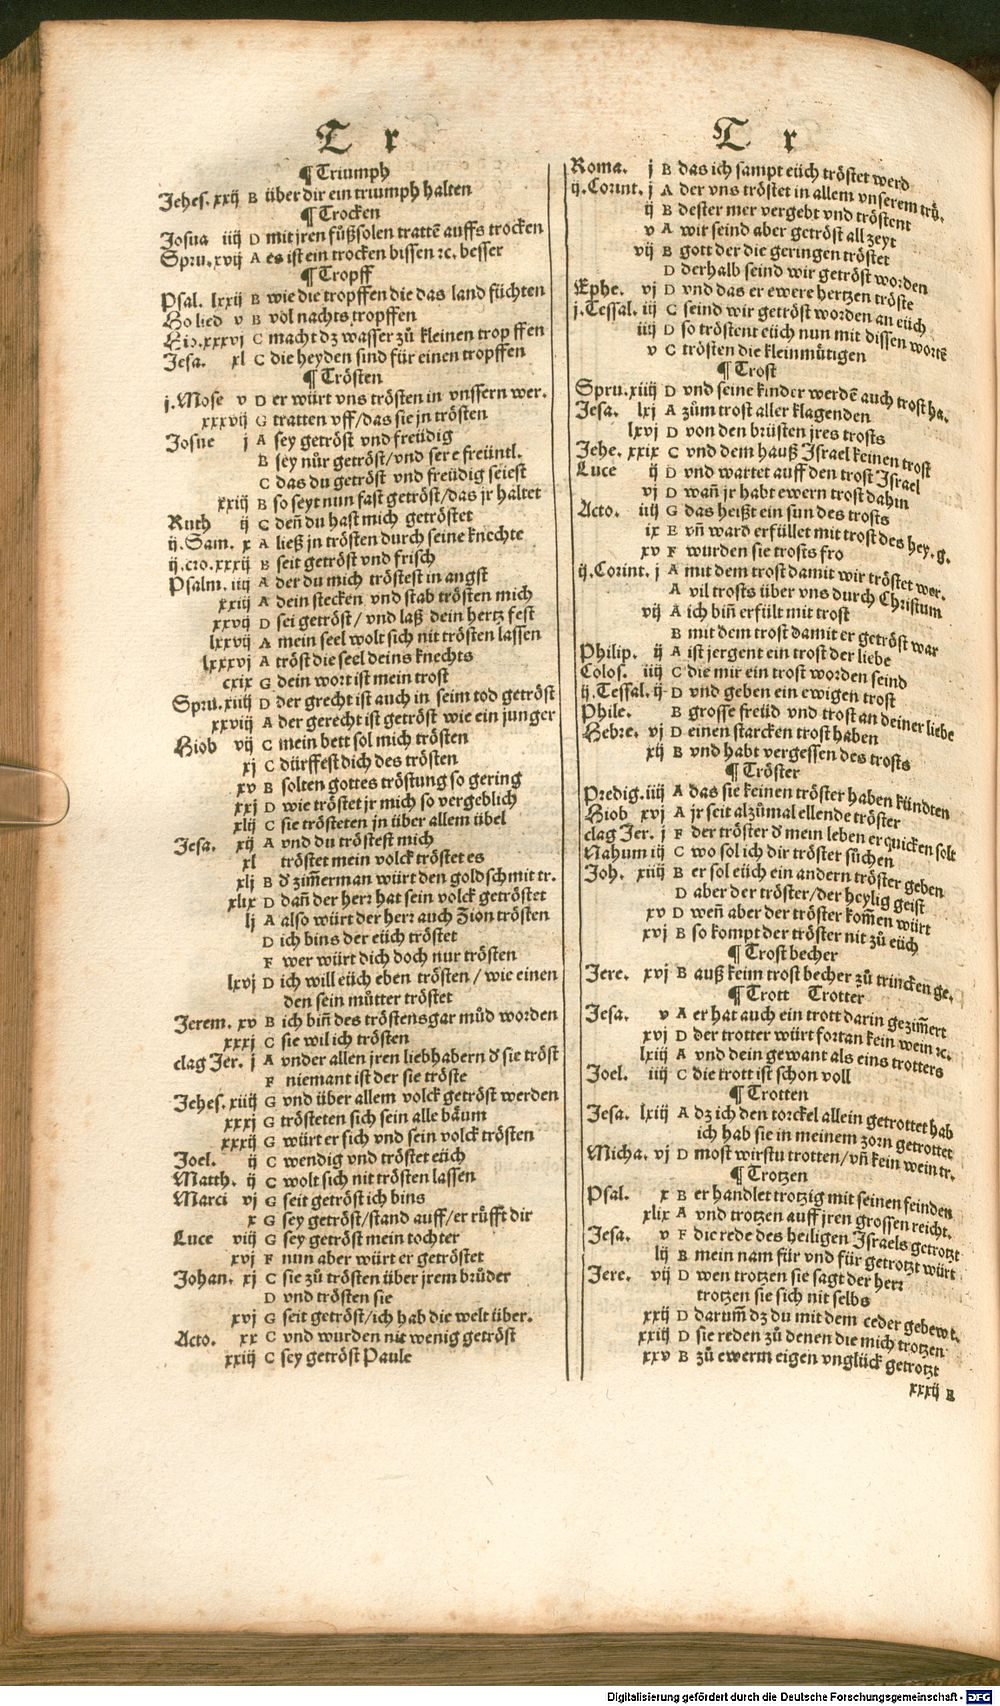 T r
¶ Triumph
Jehes. xxij B über dir ein triumph halten
¶ Trocken
Josua iiij D mit jren füßsolen trattẽ auffs trocken
Spru. xvij A es ist ein trocken bissen ꝛc. besser
¶ Tropff
Psal. lxxij B wie die tropffen die das land füchten
Ho lied v B vol nachts tropffen
Hio. xxxvj C macht dz wasser zů kleinen trop ffen
Jesa. xl C die heyden sind für einen tropffen
¶ Trösten
j. Mose v D er würt vns trösten in vnssern wer.
xxxvij G tratten vff/das sie jn trösten
Josue j A sey getröst vnd freüdig
B sey nůr getröst/vnd ser e freüntl.
C das du getröst vnd freüdig seiest
xxiij B so seyt nun fast getröst/das jr haltet
Ruth ij C deñ du hast mich getröstet
ij. Sam. x A ließ jn trösten durch seine knechte
ij. cro. xxxij B seit getröst vnd frisch
Psalm. iiij A der du mich tröstest in angst
xxiij A dein stecken vnd stab trösten mich
xxvij D sei getröst/ vnd laß dein hertz fest
lxxvij A mein seel wolt sich nit trösten lassen
lxxxvj A tröst die seel deins knechts
cxix G dein wort ist mein trost
Spru. xiiij D der grecht ist auch in seim tod getröst
xxviij A der gerecht ist getröst wie ein junger
Hiob vij C mein bett sol mich trösten
xj C dürffest dich des trösten
xv B solten gottes tröstung so gering
xxj D wie tröstet jr mich so vergeblich
xlij C sie trösteten jn über allem übel
Jesa. xij A vnd du tröstest mich
xl tröstet mein volck tröstet es
xlj B d̕ zim̃erman würt den goldschmit tr.
xlix D dañ der herr hat sein volck getröstet
lj A also würt der herr auch Zion trösten
D ich bins der eüch tröstet
F wer würt dich doch nur trösten
lxvj D ich will eüch eben trösten / wie einen
den sein můtter tröstet
Jerem. xv B ich biñ des tröstensgar můd worden
xxxj C sie wil ich trösten
clag Jer. j A vnder allen jren liebhabern d̕ sie tröst
F niemant ist der sie tröste
Jehes. xiiij G vnd über allem volck getröst werden
xxxj G trösteten sich sein alle bäum
xxxij G würt er sich vnd sein volck trösten
Joel. ij C wendig vnd tröstet eüch
Matth. ij C wolt sich nit trösten lassen
Marci vj G seit getröst ich bins
x G sey getröst/stand auff/er růfft dir
Luce viij G sey getröst mein tochter
xvj F nun aber würt er getröstet
Johan. xj C sie zů trösten über jrem brůder
D vnd trösten sie
xvj G seit getröst/ich hab die welt über.
Acto. xx C vnd wurden nit wenig getröst
xxiij C sey getröst Paule
T r
Roma. j B das ich sampt eüch tröstet werd
ij. Corint. j A der vns tröstet in allem vnserem trů.
ij B dester mer vergebt vnd tröstent
v A wir seind aber getröst all zeyt
vij B gott der die geringen tröstet
D derhalb seind wir getröst worden
Ephe. vj D vnd das er ewere hertzen tröste
j. Tessal. iij C seind wir getröst worden an eüch
iiij D so tröstent eüch nun mit dissen wortẽ
v C trösten die kleinmütigen
¶ Trost
Spru. xiiij D vnd seine kinder werdẽ auch trost ha.
Jesa. lxj A zům trost aller klagenden
lxvj D von den brüsten jres trosts
Jehe. xxix C vnd dem hauß Israel keinen trost
Luce ij D vnd wartet auff den trost Israel
vj D wañ jr habt ewern trost dahin
Acto. iiij G das heißt ein sun des trosts
ix E vñ ward erfüllet mit trost des hey. g.
xv F wurden sie trosts fro
ij. Corint. j A mit dem trost damit wir tröstet wer.
A vil trosts über vns durch Christum
vij A ich biñ erfült mit trost
B mit dem trost damit er getröst war
Philip. ij A ist jergent ein trost der liebe
Colos. iiij C die mir ein trost worden seind
ij. Tessal. ij D vnd geben ein ewigen trost
Phile. B grosse freüd vnd trost an deiner liebe
Hebre. vj D einen starcken trost haben
xij B vnd habt vergessen des trosts
¶ Tröster
Predig. iiij A das sie keinen tröster haben kündten
Hiob xvj A jr seit alzůmal ellende tröster
clag Jer. j F der tröster d̕ mein leben erquicken solt
Nahum iij C wo sol ich dir tröster sůchen
Joh. xiiij B er sol eüch ein andern tröster geben
D aber der tröster/der heylig geist
xv D weñ aber der tröster kom̃en würt
xvj B so kompt der tröster nit zů eüch
¶ Trost becher
Jere. xvj B auß keim trost becher zů trincken ge.
¶ Trott Trotter
Jesa. v A er hat auch ein trott darin gezim̃ert
xvj D der trotter würt fortan kein wein ꝛc.
lxiij A vnd dein gewant als eins trotters
Joel. iiij C die trott ist schon voll
¶ Trotten
Jesa. lxiij A dz ich den torckel allein getrottet hab
ich hab sie in meinem zorn getrottet
Micha. vj D most wirstu trotten/vñ kein wein tr.
¶ Trotzen
Psal. x B er handlet trotzig mit seinen feinden
xlix A vnd trotzen auff jren grossen reicht.
Jesa. v F die rede des heiligen Israels getrotzt
lij B mein nam für vnd für getrotzt würt
Jere. vij D wen trotzen sie sagt der herr
trotzen sie sich nit selbs
xxij D darum̃ dz du mit dem ceder gebewt.
xxiij D sie reden zů denen die mich trotzen
xxv B zů ewerm eigen vnglück getrotzt
xxxij B
Digitalisierung gefördert durch die Deutsche Forschungsgemeinschaft - DFG